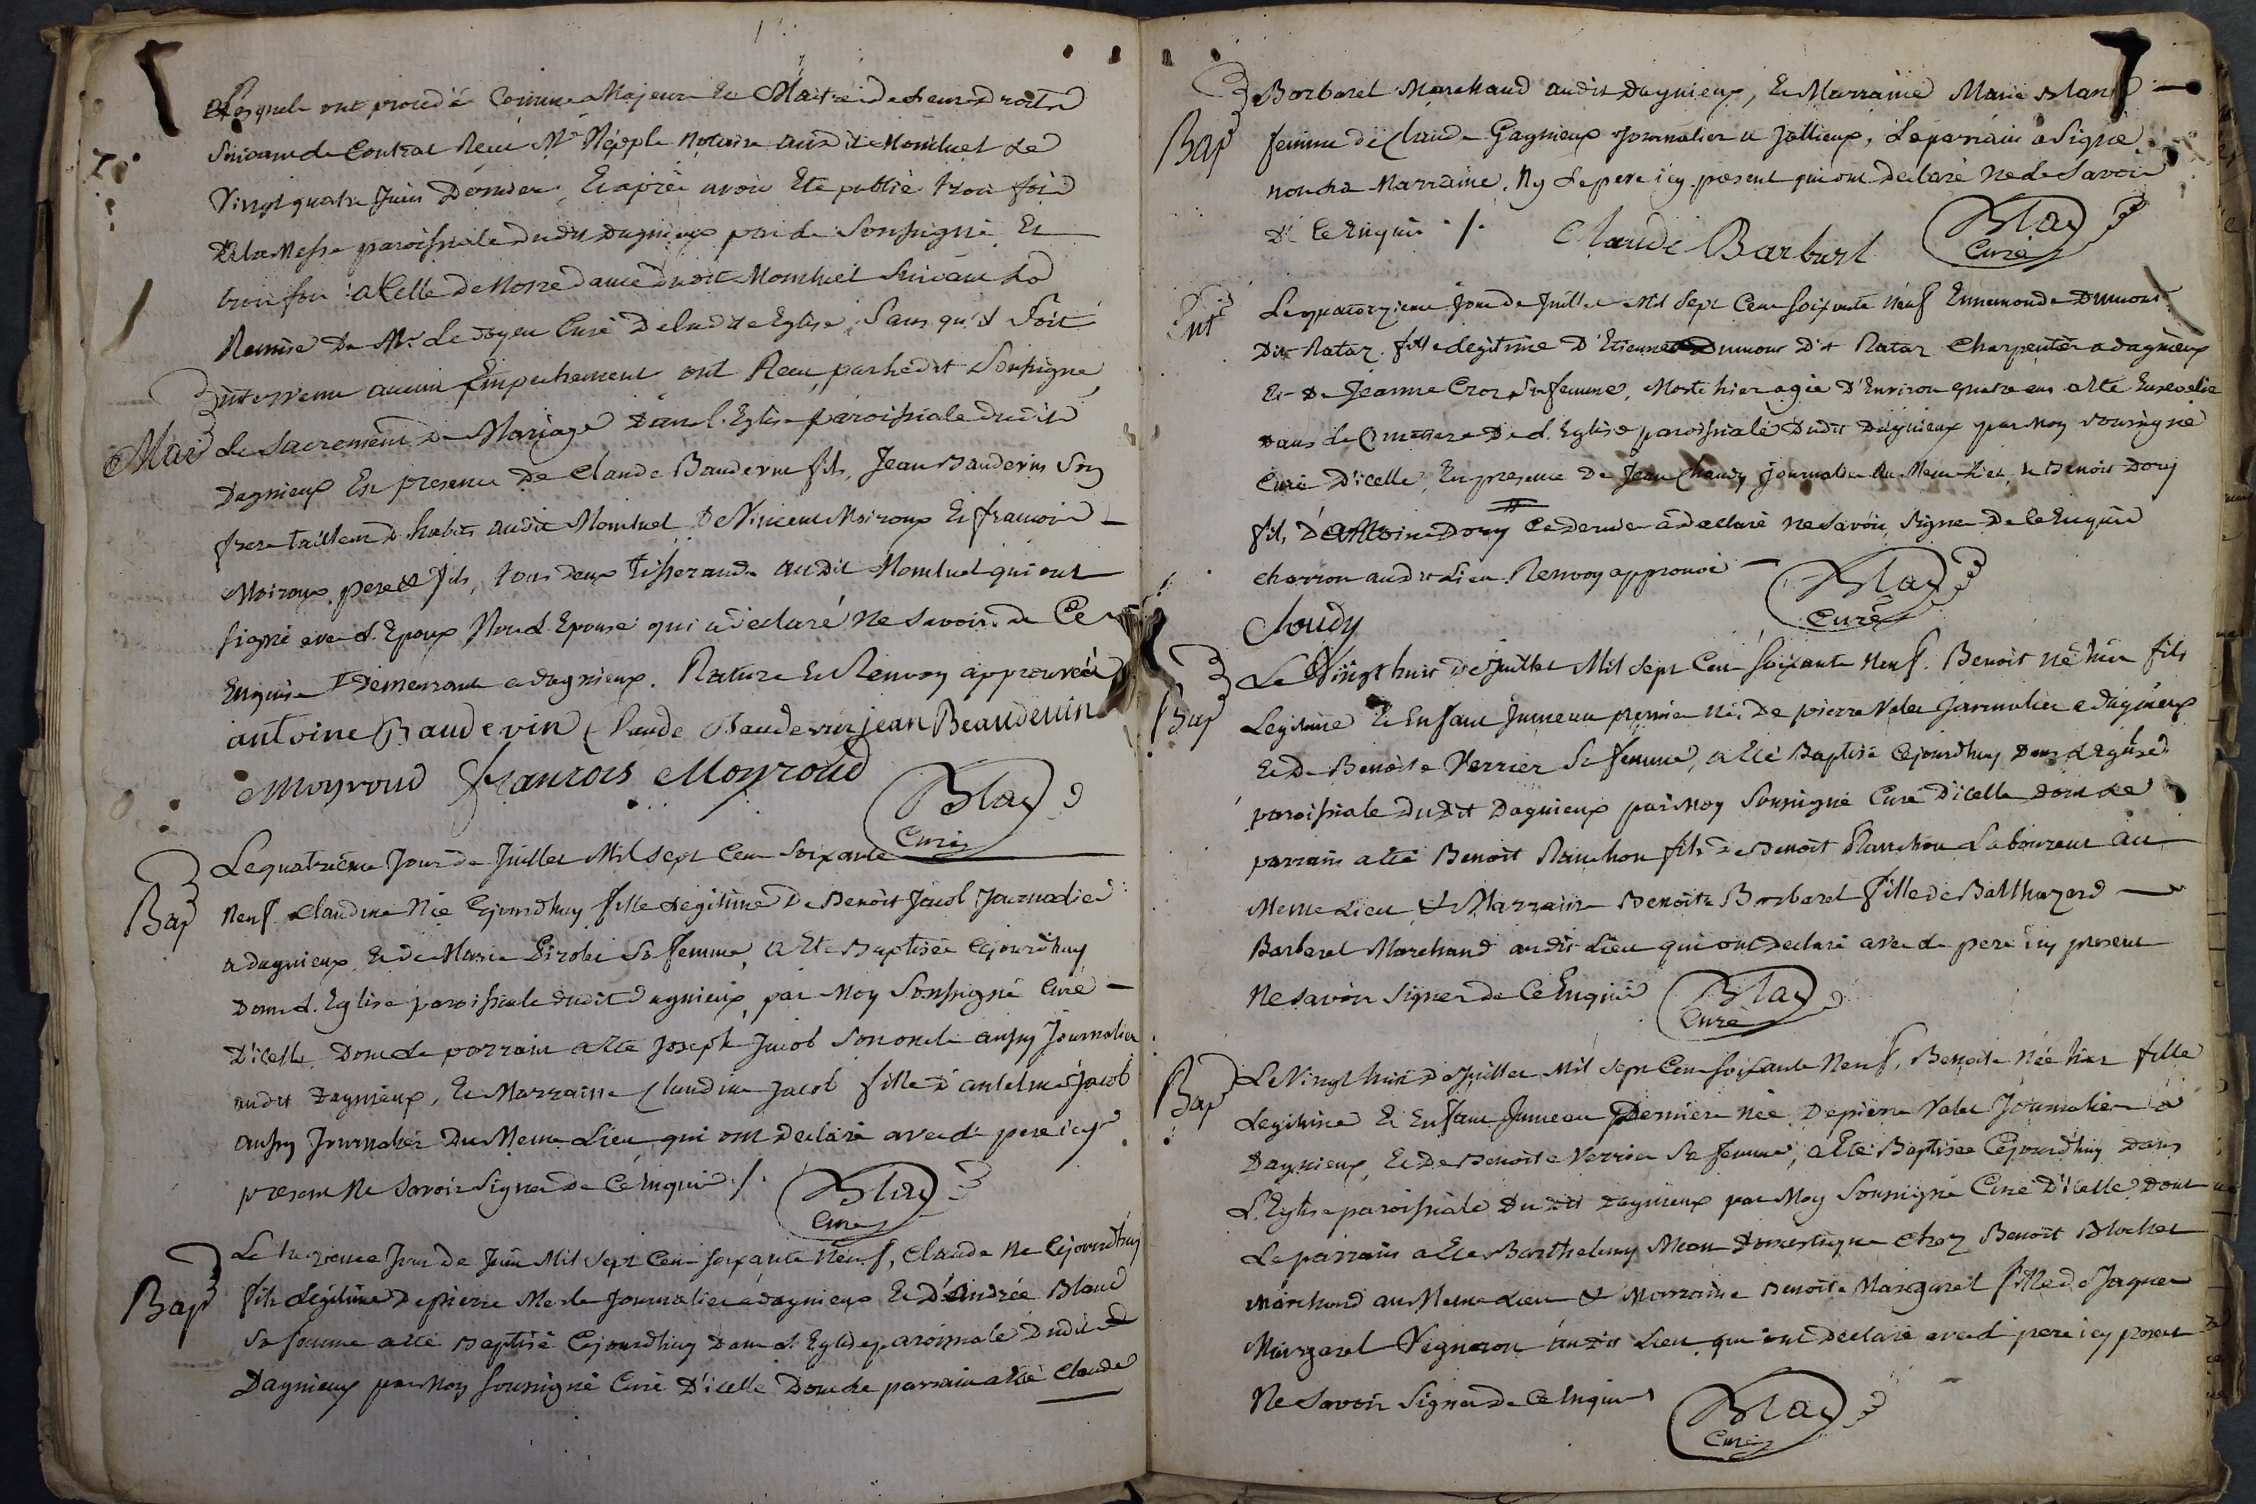 Lesquels ont procedé Comme Majeurs Et Maitres de Leurs Droits
Suivant le Contrat Receu Mr Népple Notaire audit Montluel Le
Vingt quatre Juin Dernier, Et après avoir Eté publié trois fois
a la Messe paroissiale dudit Dagnieux par le Soussigné Et
trois fois a Celle de Notre dame dudit Montluel Suivant La
Remise De Mr Le Doyen Curé De laditte Eglise, Sans qu'il Soit
intervenu aucun Empechement ont Receu par Ledit Soussigné
Mar
Le Sacrement de Mariage Dans l'Eglise paroissiale dudit
Dagnieux En presence De Claude Baudevin fils, Jean Baudevin Son
frere tailleur D'habits audit Montluel De Vincent Moiroux Et francois
Moiroux pere & fils, tous deux tisserands audit Montluel qui ont
signé avec l'Epoux Non l'Epouse qui a declaré Ne Savoir de Ce
Enquise Demeurante a dagnieux. Rature Et Renvoy approuvés
antoine Baudevin Claude Baudevin jean Beaudevin
Moyroud francois Moyroud
Blay
Curé
Bap
Le quatrième Jour de Juillet Mil Sept Cent Soixante
Neuf Claudine Née Cejourdhuy fille Legitime De Benoit Jacob Journalier
a dagnieux Et de Marie Pirolet Sa femme, a Eté Baptisée Cejourdhuy
Dans l'Eglise paroissiale dudit Dagnieux, par Moy Soussigné Curé
D'icelle Dont Le parrain a Eté Joseph Jacob Son oncle aussy Journalier
audit Dagnieux, Et Marraine Claudine Jacob fille d'antelme Jacob
aussy Journalier Du Meme Lieu qui ont Declaré avec Le pere icy
present Ne Savoir Signer De Ce Enquis /.
Blay
Curé
Bap
Le Jour de Juin Mil Sept Cent Soixante Neuf, Claude Né Cejourdhuy
fils Légitime De pierre Merle Journalier a dagnieux Et D'Andrée Blanc
Sa femme a Eté Baptisé Cejourdhuy Dans l'Eglise paroissiale Dudit
Dagnieux par Moy Soussigné Curé D'icelle Dont Le parrain a Eté Claude
Bap
Borbarel Marchand audit Dagnieux, Et Marraine Marie Blanc
femme de Claude Gagnieux Journalier a Jallieux, Le parrain a Signé
non La Marraine, Ny Le pere icy present qui ont Declaré Ne le Savoir
De Ce Enquis /.
Claude Barburet
Blay
Curé
Le quatorzieme Jour de Juillet Mil Sept Cent Soixante Neuf Ennemonde Dumont
Dit Rataz fille Legitime D'Etienne Dumont Dit Rataz Charpentier a dagnieux
Et De Jeanne Croz Sa femme, Morte hier agée D'Environ quatre ans a Eté Ensevelie
Dans Le Cimetiere De l'Eglise paroissiale Dudit Dagnieux par Moy Soussigné
Curé D'icelle, En presence De Jean Choudy Journalier du Meme Lieu, & Benoit Dory
fils D'Antoine Dory Ce Dernier a Declaré Ne Savoir Signer De Ce Enquis
Charron audit Lieu Renvoy approuvé
Blay
Curé
Choudy
Bap
Le Vingt huit de Juillet Mil Sept Cent Soixante Neuf. Benoit Né hier fils
Legitime Et Enfant Jumeau premier Né, De pierre Valet Journalier a dagnieux
Et De Benoite Verrier Sa femme, a Eté Baptisé Cejourdhuy Dans L'Eglise
paroissiale Dudit Dagnieux par Moy Soussigné Curé D'icelle Dont Le
parrain a Eté Benoit Planchon fils de Benoit Planchon Laboureur au
Meme Lieu Et Marraine Benoite Borbarel fille de Balthazard
Barbarel Marchand audit Lieu qui ont Declaré avec Le pere icy present
Ne Savoir Signer de Ce Enquis
Blay
Curé
Bap
Le Vingt huit de Juillet Mil Sept Cent Soixante Neuf, Benoite Née hier fille
Legitime Et Enfant Jumeau Derniere Née De pierre Valet Journalier a
Dagnieux, Et De Benoite Verrier Sa femme, a Eté Baptisée Cejourdhuy Dans
L'Eglise paroissiale Dudit Dagnieux par Moy Soussigné Curé D'icelle Dont
Le parrain a Eté Barthelemy Domestique Chez Benoit Blochet
Marchand au Meme Lieu Et Marraine Benoite Margarel fille de Jaques
Margarel Vigneron audit Lieu qui ont Declaré avec Le pere icy present
Ne Savoir Signer De Ce Enquis
Blay
Curé